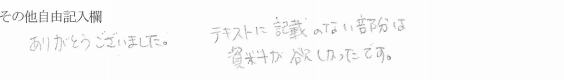 その他自由記入欄
ありがとうございました。
テキストに記載のない部分は
資料が欲しかったです。